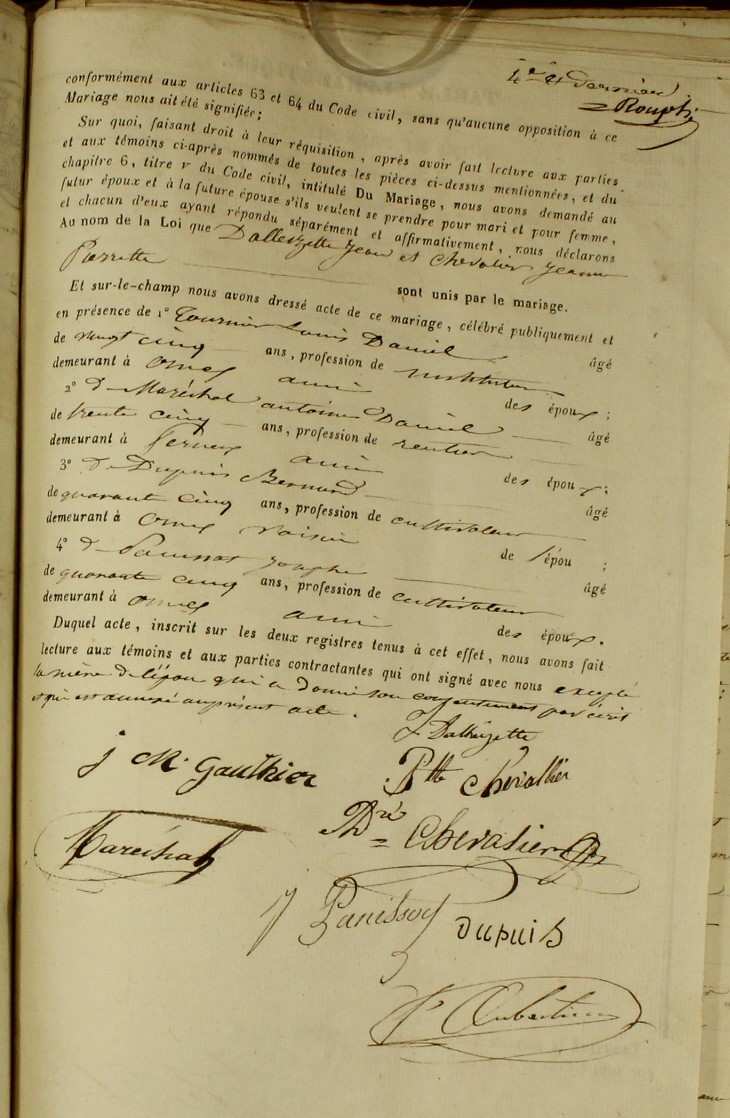 4e et dernier
conformément aux articles 63 et 64 du Code civil, sans qu'aucune opposition à ce
Mariage nous ait été signifiée;
Sur quoi, faisant droit à leur réquisition, après avoir fait lecture aux parties
et aux témoins ci-après nommés de toutes les pièces ci-dessus mentionnées, et du
chapitre 6, titre V du Code civil, intitulé Du Mariage, nous avons demandé au
futur époux et à la future épouse s'ils veulent se prendre pour mari et pour femme,
et chacun d'eux ayant répondu séparément et affirmativement, nous déclarons
Au nom de la Loi que Dalleizette Jean et Chevalier Jeanne
Pierrette sont unis par le mariage.
Et sur-le-champ nous avons dressé acte de ce mariage, célébré publiquement et
en présence de 1° Tournier Louis Daniel âgé
de vingt cinq ans, profession de instituteur
demeurant à Ornex ami des époux;
2° d. Maréchal antoine Daniel âgé
de trente cinq ans, profession de rentier
demeurant à Ferney ami des époux;
3° d. Dupuis Bernard âgé
de quarante cinq ans, profession de cultivateur
demeurant à Ornex voisin de l'épou ;
4° d. Panissot Joseph âgé
de quarante cinq ans, profession de cultivateur
demeurant à Ornex ami des époux.
Duquel acte, inscrit sur les deux registres tenus à cet effet, nous avons fait
lecture aux témoins et aux parties contractantes qui ont signé avec nous excepté
la mère de l'épou qui a donné son consentement par écrit
et qui est annexé au présent acte.
J. Dalleizette
j M. Gauthier
Ptte chevallier
Maréchal
Chevalier
Panissot
DUPUIS